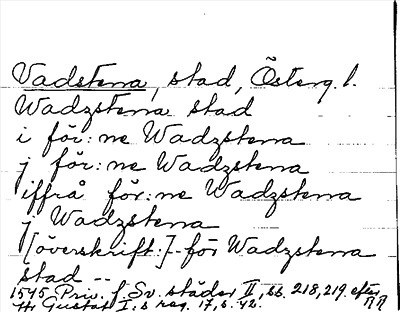 Vadstena, stad, Österg. l.
Wadzstena stad
i för:ne Wadzstena
j för:ne Wadzstena
iffrå för:ne Wadzstena
j Wadzstena
[överskrift:] för Wadzstena
stad --
1545 Priv. f Sv. städer II, ss. 218, 219 efter RR
Gustaf I:s reg. 17, s. 42.